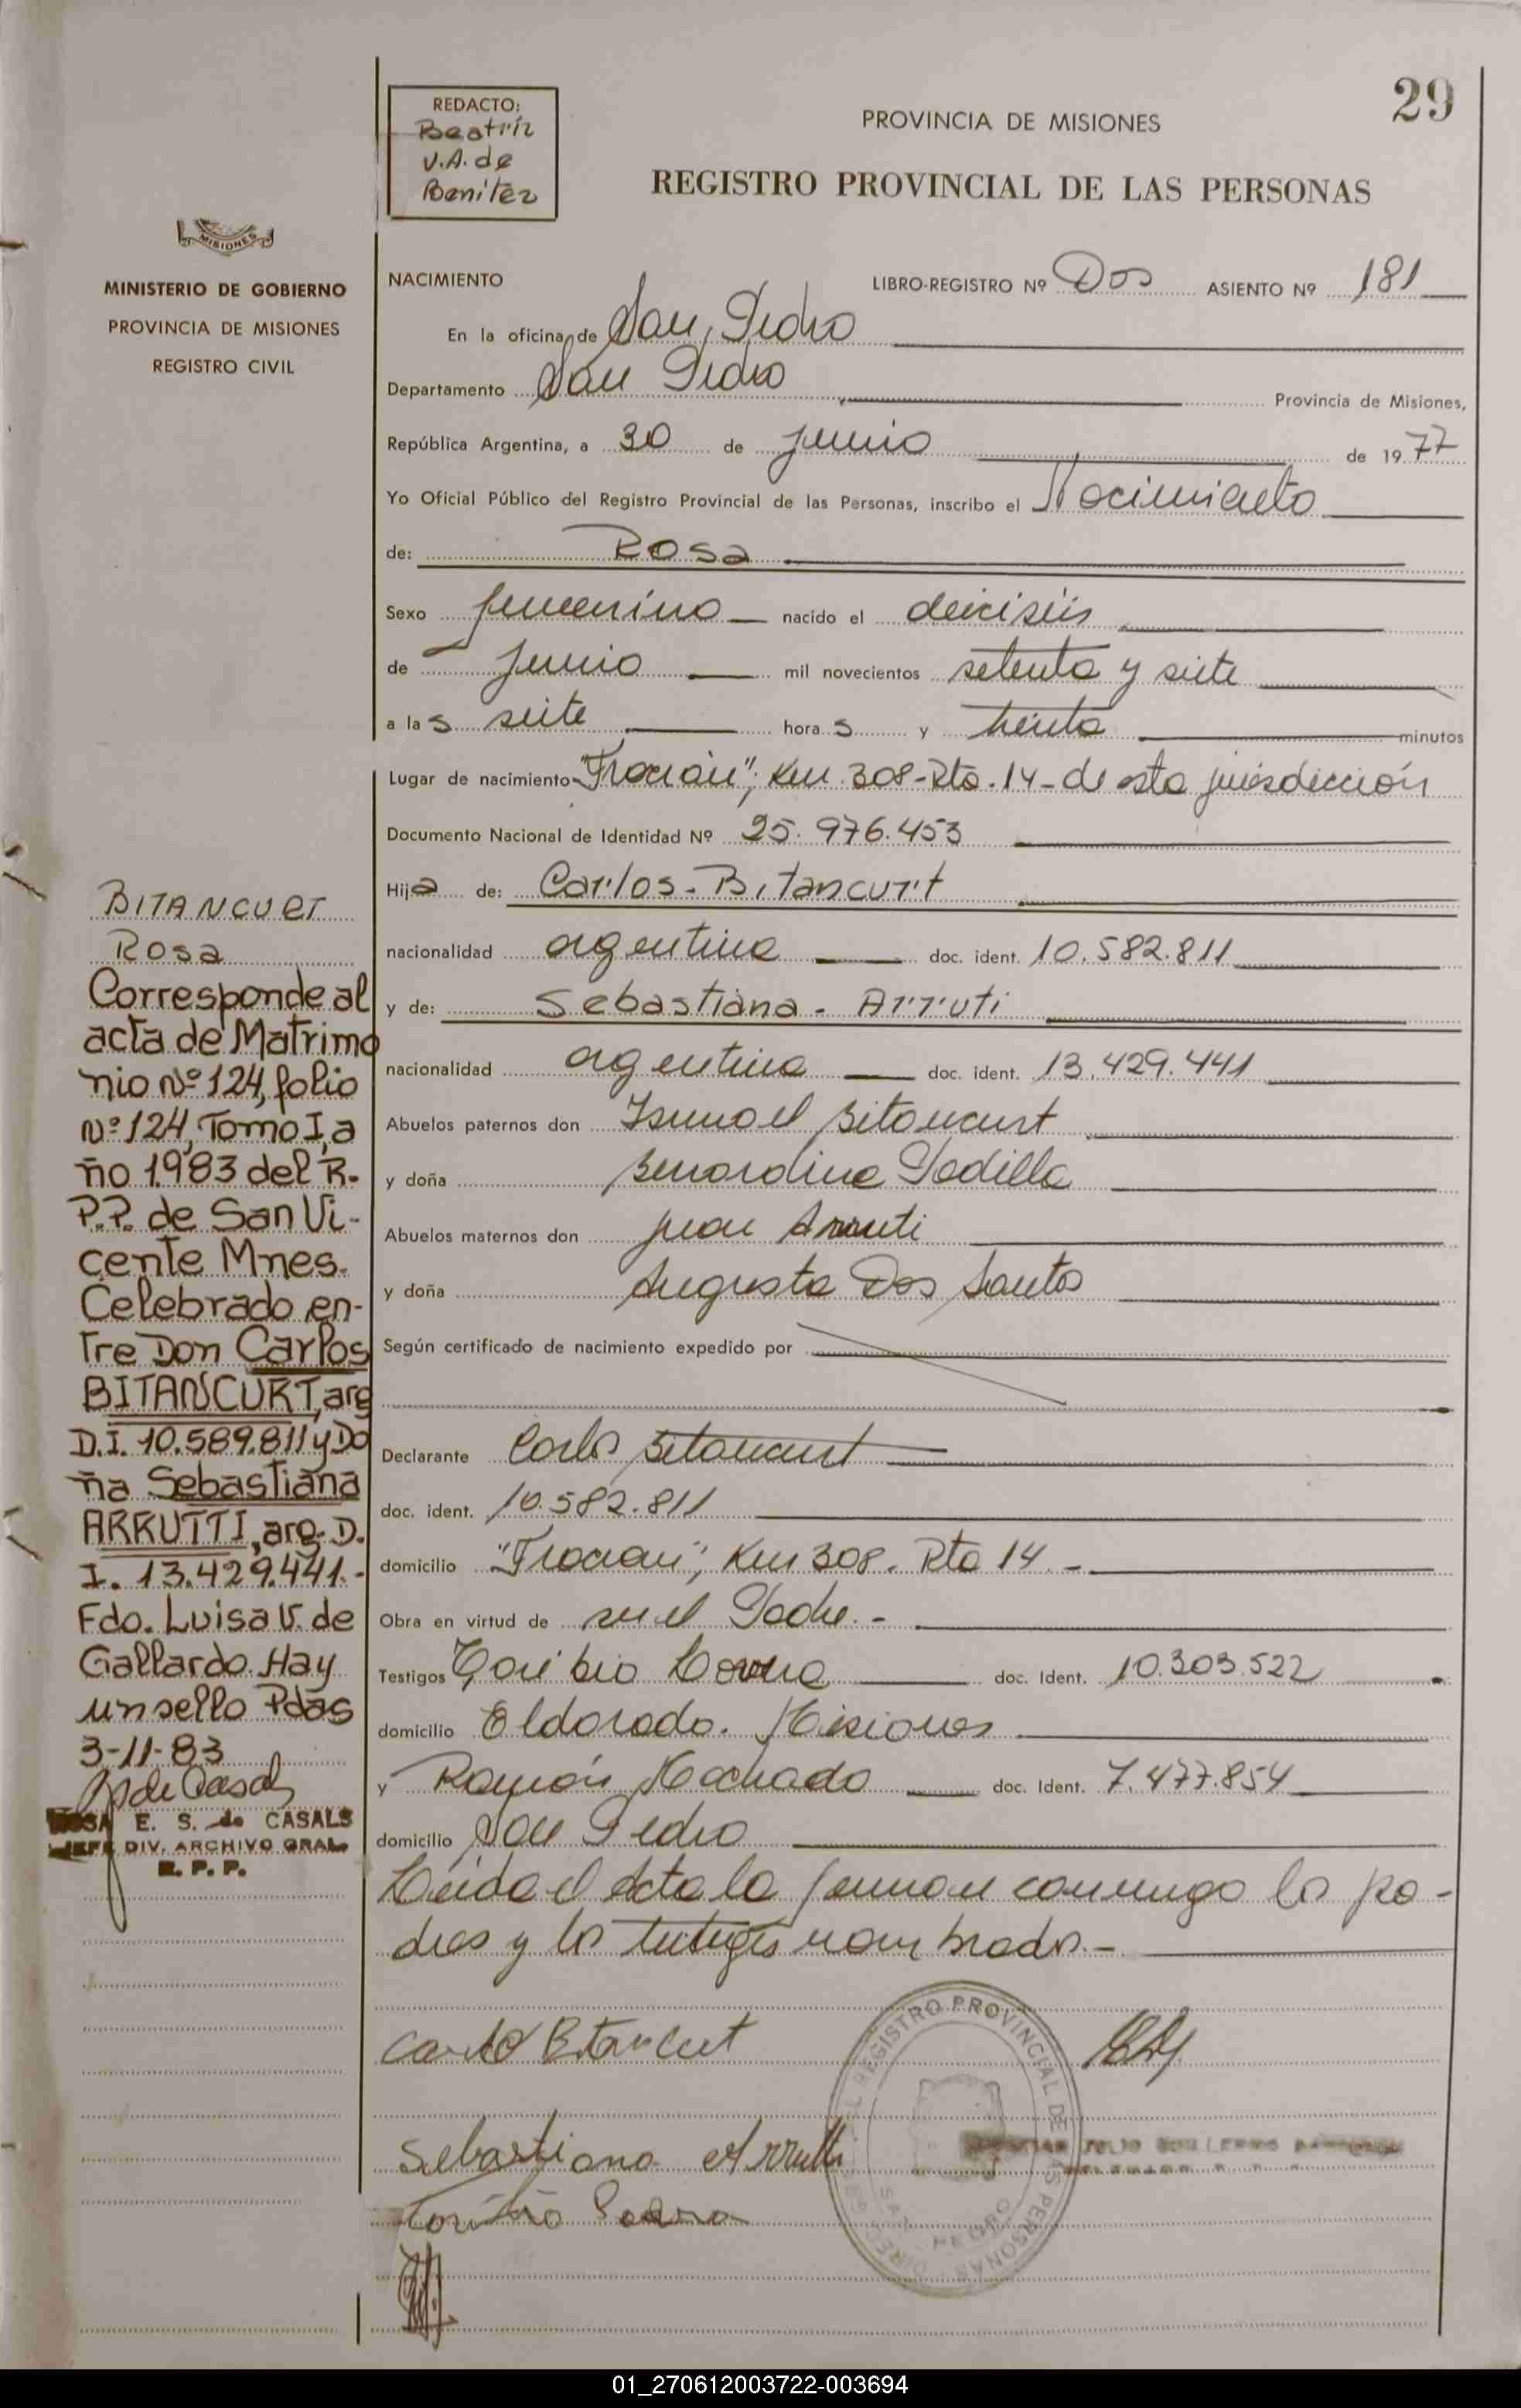 29
REDACTO:
Beatríz
V.A. de
Benítez
PROVINCIA DE MISIONES
REGISTRO PROVINCIAL DE LAS PERSONAS
MISIONES
MINISTERIO DE GOBIERNO
PROVINCIA DE MISIONES
REGISTRO CIVIL
NACIMIENTO LIBRO-REGISTRO Nº Dos ASIENTO Nº 181
En la oficina de San Pedro
Departamento San Pedro Provincia de Misiones,
República Argentina, a 30 de junio de 1977
Yo Oficial Público del Registro Provincial de las Personas, inscribo el Nacimiento
de: Rosa
Sexo femenino nacido el dieciséis
de Junio mil novecientos setenta y siete
a las siete horas y treinta minutos
Lugar de nacimiento "Fracran", Km. 308-Rta.14-de esta jurisdicción
Documento Nacional de Identidad Nº 25.976.453
Hija de: Carlos-Bitancurt
nacionalidad argentina doc. ident. 10.582.811
y de: Sebastiana - Arruti
nacionalidad argentina doc. ident. 13.429.441
Abuelos paternos don Ismael Bitancurt
y doña Bernardina Padilla
Abuelos maternos don Juan Arruti
y doña Augusta Dos Santos
Según certificado de nacimiento expedido por
Declarante Carlos Bitancurt
doc. ident. 10.582.811
domicilio "Fracran", Km 308. Rta 14.-
Obra en virtud de ser el Padre.-
Testigos Toribio doc. Ident. 10.303.522
domicilio Eldorado. Misiones
y Ramón Machado doc. Ident. 7.477.854
domicilio San Pedro
Leida el Acta la firman conmigo los pa-
dres y los testigos nombrados.-
BITANCURT
Rosa
Corresponde al
acta de Matrimo
nio Nº 124, folio
Nº 124, Tomo I, a
ño 1983 del R.
P.P. de San Vi-
cente Mnes.
Celebrado en-
tre Don Carlos
BITANCURT, arg
D.I. 10.589.811 y Do
ña Sebastiana
ARRUTTI, arg. D.
I. 13.429.441.-
Fdo. Luisa V. de
Gallardo. Hay
un sello Pdas
3-11-83
ROSA E. S. de CASALS
JEFE DIV. ARCHIVO GRAL.
R. P. P.
Carlos Bitancurt
Sebastiana Arrutti
Toribio
REGISTRO PROVINCIAL DE LAS PERSONAS
SAN PEDRO
01_270612003722-003694